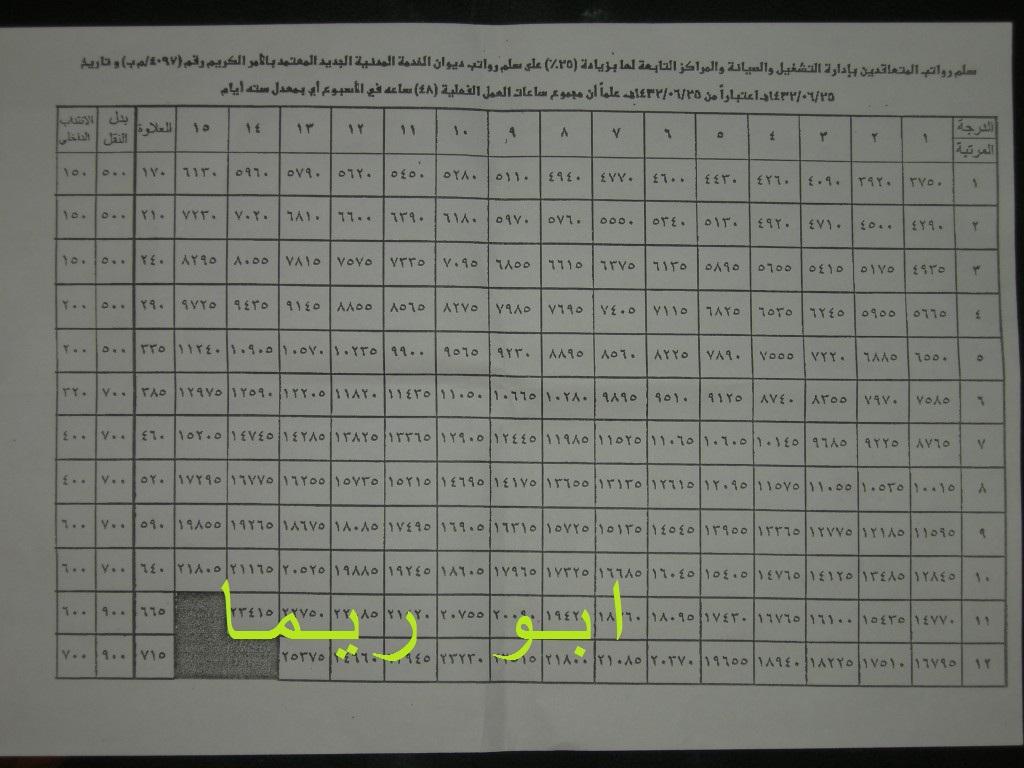 سلم رواتب المتعاقدين بإدارة التشغيل والصيانة والمراكز التابعة لها بزيادة (٢٥٪) علي سلم رواتب ديوان الخدمة المدنية الجديد المعتمد بالأمر الكريم رقم (٤٠٩٧/م ب) و تاريخ
١٤٣٢/٠٦/٢٥هـ اعتباراً من ١٤٣٢/٠٦/٢٥هـ علماً أن مجموع ساعات العمل الفعلية (٤٨) ساعه في الأسبوع أي بمعدل سته أيام
الدرجة المرتبة ١ ٢ ٣ ٤ ٥ ٦ ٧ ٨ ٩ ١٠ ١١ ١٢ ١٣ ١٤ ١٥ العلاوة بدل النقل الانتداب الداخلي
١ ٣٧٥٠ ٣٩٢٠ ٤٠٩٠ ٤٢٦٠ ٤٤٣٠ ٤٦٠٠ ٤٧٧٠ ٤٩٤٠ ٥١١٠ ٥٢٨٠ ٥٤٥٠ ٥٦٢٠ ٥٧٩٠ ٥٩٦٠ ٦١٣٠ ١٧٠ ٥٠٠ ١٥٠
٢ ٤٢٩٠ ٤٥٠٠ ٤٧١٠ ٤٩٢٠ ٥١٣٠ ٥٣٤٠ ٥٥٥٠ ٥٧٦٠ ٥٩٧٠ ٦١٨٠ ٦٣٩٠ ٦٦٠٠ ٦٨١٠ ٧٠٢٠ ٧٢�٠ ٢١٠ ٥٠٠ ١٥٠
٣ ٤٩٣٥ ٥١٧٥ ٥٤١٥ ٥٦٥٥ ٥٨٩٥ ٦١٣٥ ٦٣٧٥ ٦٦١٥ ٦٨٥٥ ٧٠٩٥ ٧٣٣٥ ٧٥٧٥ ٧٨١٥ ٨٠٥٥ ٨٢٩٥ ٢٤٠ ٥٠٠ ١٥٠
٤ ٥٦٦٥ ٥٩٥٥ ٦٢٤٥ ٦٥٣٥ ٦٨٢٥ ٧١١٥ ٧٤٠٥ ٧٦٩٥ ٧٩٨٥ ٨٢٧٥ ٨٥٦٥ ٨٨٥٥ ٩١٤٥ ٩٤٣٥ ٩٧٢٥ ٢٩٠ ٥٠٠ ٢٠٠
٥ ٦٥٥٠ ٦٨٨٥ ٧٢٢٠ ٧٥٥٥ ٧٨٩٠ ٨٢٢٥ ٨٥٦٠ ٨٨٩٥ ٩٢٣٠ ٩٥٦٥ ٩٩٠٠ ١٠٢٣٥ ١٠٥٧٠ ١٠٩٠٥ ١١٢٤٠ ٣٣٥ ٥٠٠ ٢٠٠
٦ ٧٥٨٥ ٧٩٧٠ ٨٣٥٥ ٨٧٤٠ ٩١٢٥ ٩٥١٠ ٩٨٩٥ ١٠٢٨٠ ١٠٦٦٥ ١١٠٥٠ ١١٤٣٥ ١١٨٢٠ ١٢٢٠٥ ١٢٥٩٠ ١٢٩٧٥ ٣٨٥ ٧٠٠ ٣٢٠
٧ ٨٧٦٥ ٩٢٢٥ ٩٦٨٥ ١٠١٤٥ ١٠٦٠٥ ١١٠٦٥ ١١٥٢٥ ١١٩٨٥ ١٢٤٤٥ ١٢٩٠٥ ١٣٣٦٥ ١٣٨٢٥ ١٤٢٨٥ ١٤٧٤٥ ١٥٢٠٥ ٤٦٠ ٧٠٠ ٤٠٠
٨ ١٠٠١٥ ١٠٥٣٥ ١١٠٥٥ ١١٥٧٥ ١٢٠٩٥ ١٢٦١٥ ١٣١٣٥ ١٣٦٥٥ ١٤١٧٥ ١٤٦٩٥ ١٥٢١٥ ١٥٧٣٥ ١٦٢٥٥ ١٦٧٧٥ ١٧٢٩٥ ٥٢٠ ٧٠٠ ٤٠٠
٩ ١١٥٩٥ ١٢١٨٥ ١٢٧٧٥ ١٣٣٦٥ ١٣٩٥٥ ١٤٥٤٥ ١٥١٣٥ ١٥٧٢٥ ١٦٣١٥ ١٦٩٠٥ ١٧٤٩٥ ١٨٠٨٥ ١٨٦٧٥ ١٩٢٦٥ ١٩٨٥٥ ٥٩٠ ٧٠٠ ٦٠٠
١٠ ١٢٨٤٥ ١٣٤٨٥ ١٤١٢٥ ١٤٧٦٥ ١٥٤٠٥ ١٦٠٤٥ ١٦٦٨٥ ١٧٣٢٥ ١٧٩٦٥ ١٨٦٠٥ ١٩٢٤٥ ١٩٨٨٥ ٢٠٥٢٥ ٢١١٦٥ ٢١٨٠٥ ٦٤٠ ٧٠٠ ٦٠٠
١١ ١٤٧٧٠ ١٥٤٣٥ ١٦١٠٠ ١٦٧٦٥ ١٧٤٣٠ ١٨٠٩٥ ٢٠٠٩٠ ٢٠٧٥٥ ٢٢٧٥٠ ٢٣٤١٥ ٦٦٥ ٩٠٠ ٦٠٠
١٢ ١٦٧٩٥ ١٧٥١٠ ١٨٢٢٥ ١٨٩٤٠ ١٩٦٥٥ ٢٠٣٧٠ ٢١٠٨٥ ٢١٨٠٠ ٢٣٢٣٠ ٢٥٣٧٥ ٧١٥ ٩٠٠ ٧٠٠
ابو ريما